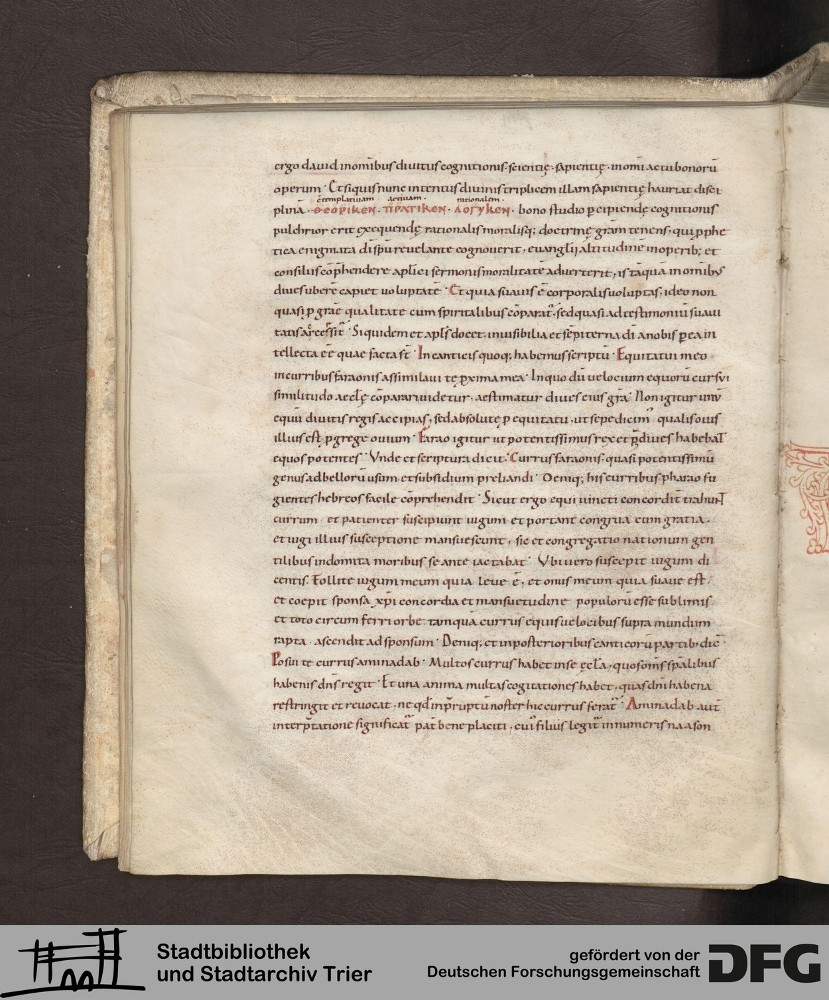 ergo dauid in omībus diuitus cognitionis. scientię. sapientię. in omī actu bonorū
operum. Et siquis nunc intentus diuinis triplicem illam sapientię hauriat disci
c̄templatiuam actiuam. rationalem.
plinā. ΘΕΟΡΙΚΕΝ. ΠΡΑΤΙΚΕΝ. ΛΟΓΥΚΕΝ. bono studio ꝑcipiendę cognitionis
pulchrior erit exequendę rationalis moralisq; doctrinę gr̄am tenens. qui ꝓphe
tica enigmata dī sp̄u reuelante cognouerit. euanglii altitudinē in operib; et
consiliis cōphendere apl̄ici sermonis moralitatē aduerterit. is tāquā in omibꝰ
diues ubere capiet uoluptatē. Et quia suauis ē corporalis uoluptas. ideo non
quasi ꝓ grae qualitate cum spiritalibus cōparat᷑. sed quasi ad testimoniū suaui
tatis arcessit᷑. Siquidem et apl̄s docet. inuisibilia et sēpiterna dī a nobis ꝑ ea in
tellecta eē quae facta st̄. In canticis quoq; habemus scriptū. Equitatui meo
in curribus faraonis assimilaui te ꝓxima mea. In quo dū uelocium equorū cursui
similitudo aecl̄ę cōparari uidetur. aestimatur diues eius gr̄a. Non igitur unū
equū diuitis regis accipias. sed absolute ꝑ equitatu. ut sepe dicim᷒ qualis ouis
illius est. ꝓ grege ouium. Farao igitur ut potentissimus rex et p̄diues habebat
equos potentes. Vnde et scriptura dicit. Currus faraonis. quasi potentissimū
genus ad bellorū usum et subsidium preliandi. Deniq; his curribus pharao fu
gientes hebreos facile cōprehendit. Sicut ergo equi uincti concordit᷑ trahunt
currum. et patienter suscipiunt iugum. et portant congrua cum gratia.
et iugi illius susceptione mansuescunt. sic et congregatio nationum gen
tilibus indomita moribus se ante iactabat. Vbi uero suscepit iugum di
centis. Tollite iugum meum quia leue ē. et onus meum quia suaue est.
et coepit sponsa xp̄i concordia et mansuetudine populorū esse sublimis
et toto circumferri orbe. tamquā currus equis uelocibus supra mundum
rapta. ascendit ad sponsum. Deniq; et in posterioribus canticorū partib; dic᷑.
Posuit te currus aminadab. Multos currus habet in se ęcl̄a. quos om̄s sp̄alibus
habenis dn̄s regit. Et una anima multas cogitationes habet. quas dn̄i habena
restringit et reuocat. ne qd̄ in p̄ruptū noster hic currus ferat᷑. Aminadab aut̄
interp̄tatione significat᷑ pat̄ beneplaciti. cui᷒ filius legit᷑ in numeris naason
Stadtbibliothek
und Stadtarchiv Trier
gefördert von der
Deutschen Forschungsgemeinschaft
DFG